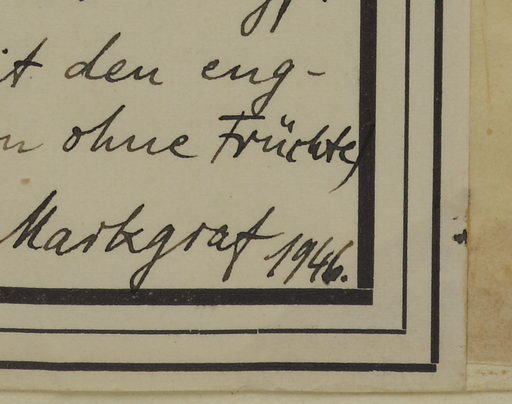 it den eng-
n ohne Früchte)
Markgraf 1946.